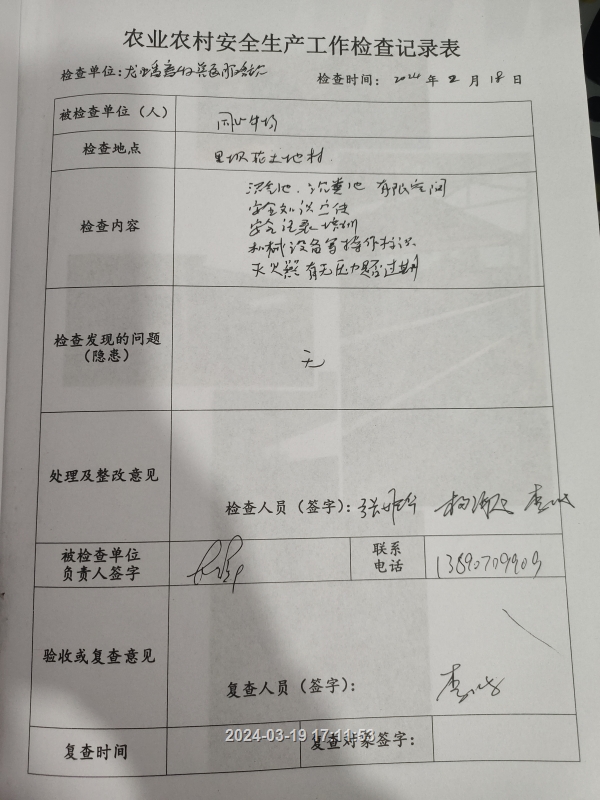 农业农村安全生产工作检查记录表
检查单位：
检查时间：2024年2月18日
被检查单位（人）
检查地点 里坝花土地村
检查内容 沼气池、沉粪池 有限空间
安全知识宣传
安全记录培训
机械设备等操作标识
灭火器有无压力是否过期
检查发现的问题（隐患） 无
处理及整改意见
检查人员（签字）：
被检查单位负责人签字
联系电话 13890709909
验收或复查意见
复查人员（签字）：
复查时间
复查对象签字：
2024-03-19 17:11:53